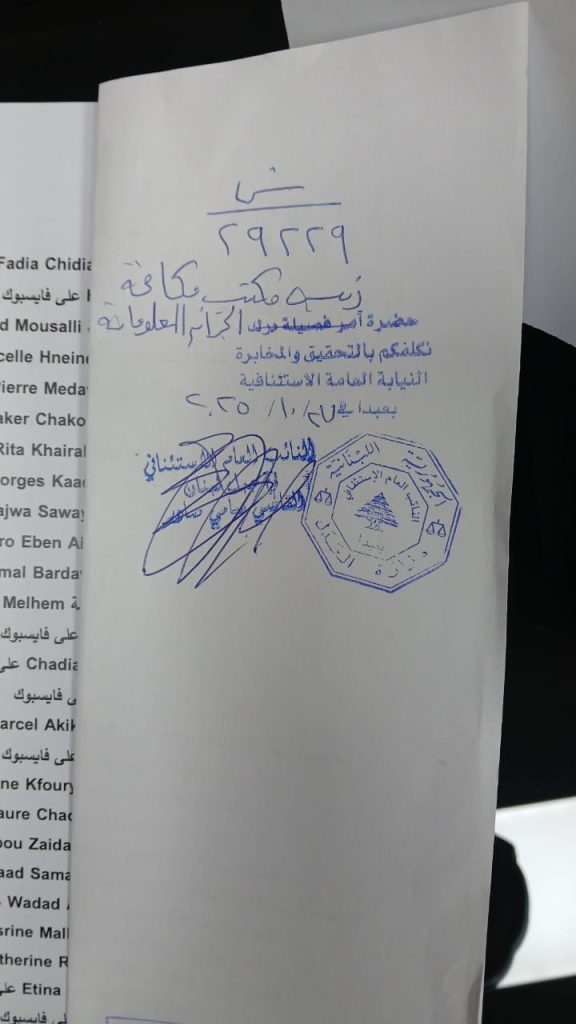 ش
٢٩٢٢٩
مكتب مكافحة
حضرة آمر فصيلة درك الجرائم المعلوماتية
نكلفكم بالتحقيق والمخابرة
النيابة العامة الاستئنافية
بعبدا في ٢٧/١٠/٢٠٢٥
النائب العام الاستئنافي
في جبل لبنان
القاضي سامي صادر
الجمهورية اللبنانية
وزارة العدل
النائب العام الإستئنافي
بعبدا
Fadia Chidia
على فايسبوك
d Mousalli
celle Hnein
Pierre Meda
aker Chako
Rita Khaira
orges Kaa
ajwa Saway
ro Eben Ai
mal Barda
Melhem ة
على فايسبوك
Chadia على
ى فايسبوك
arcel Akik
على فايسبوك
ne Kfoury
aure Chac
bou Zaida
aad Sama
Wadad
srine Mall
therine R
Etina على
لى فايسبوك